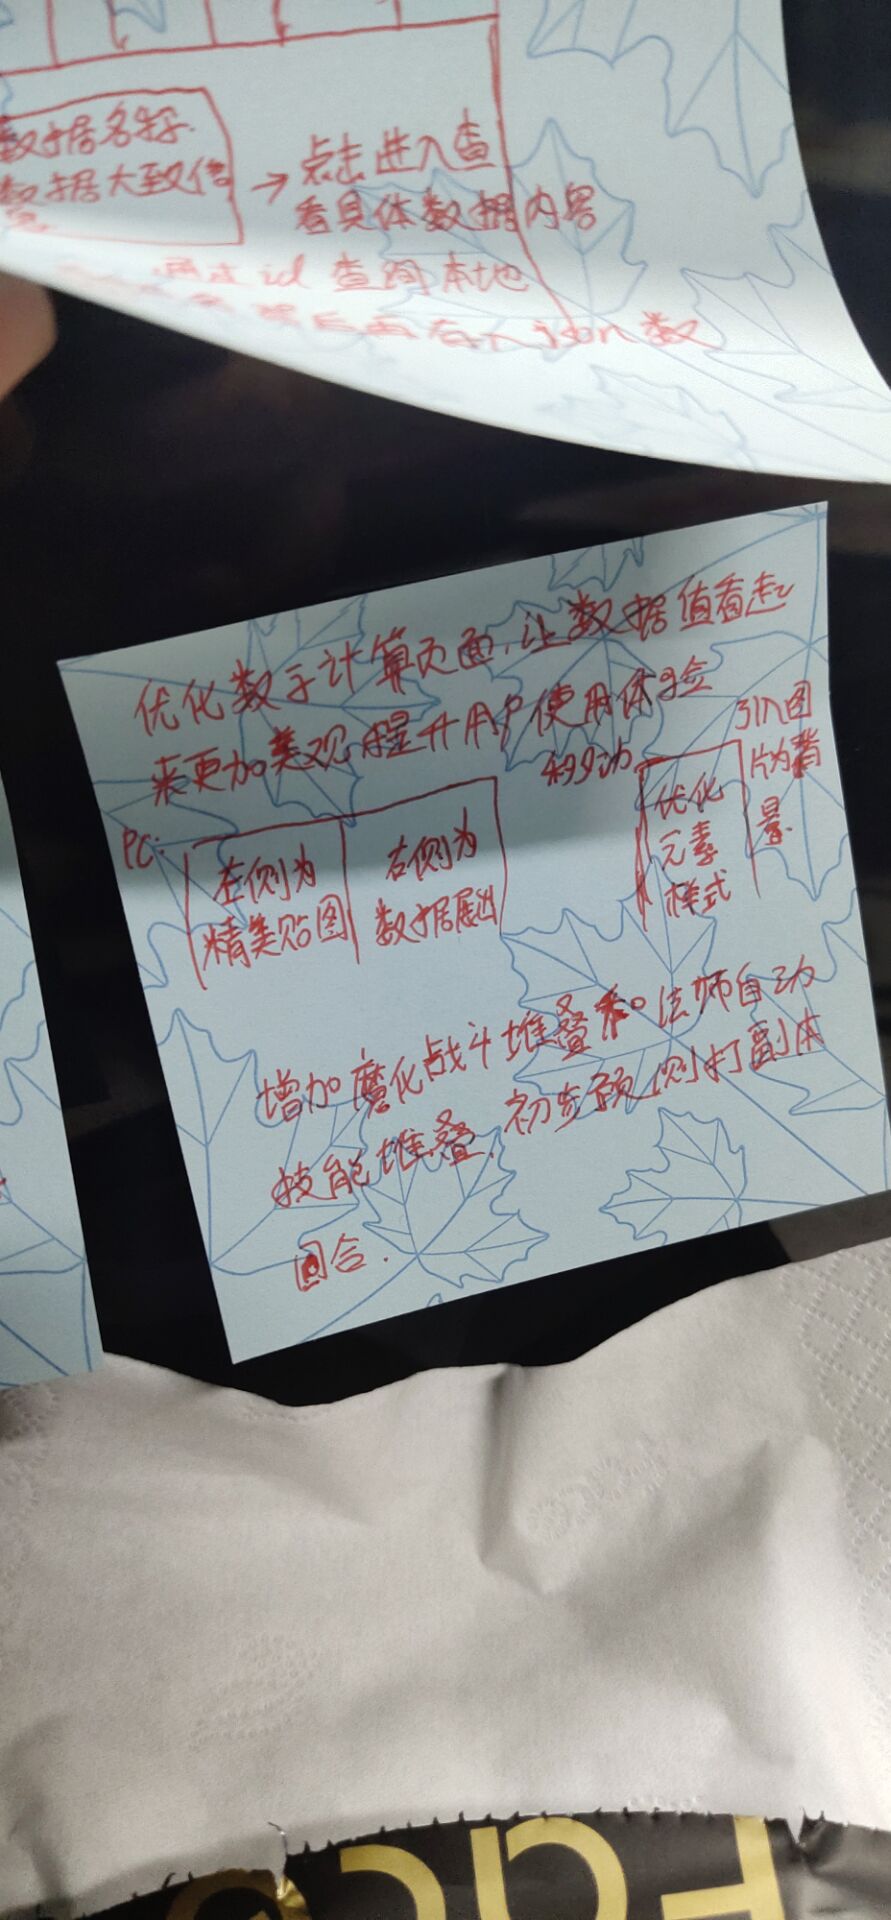 数据名称.
数据大致信
息
→点击进入查
看具体数据内容
通过id查询本地
后再存入json数
优化数字计算页面,让数据值看起
来更加美观,提升用户使用体验
PC:
左侧为
精美贴图
右侧为
数据展出
移动
优化
元素
样式
引入图
片为背
景.
增加魔化战斗堆叠和法师自动
技能堆叠.初步预测打副本
回合.